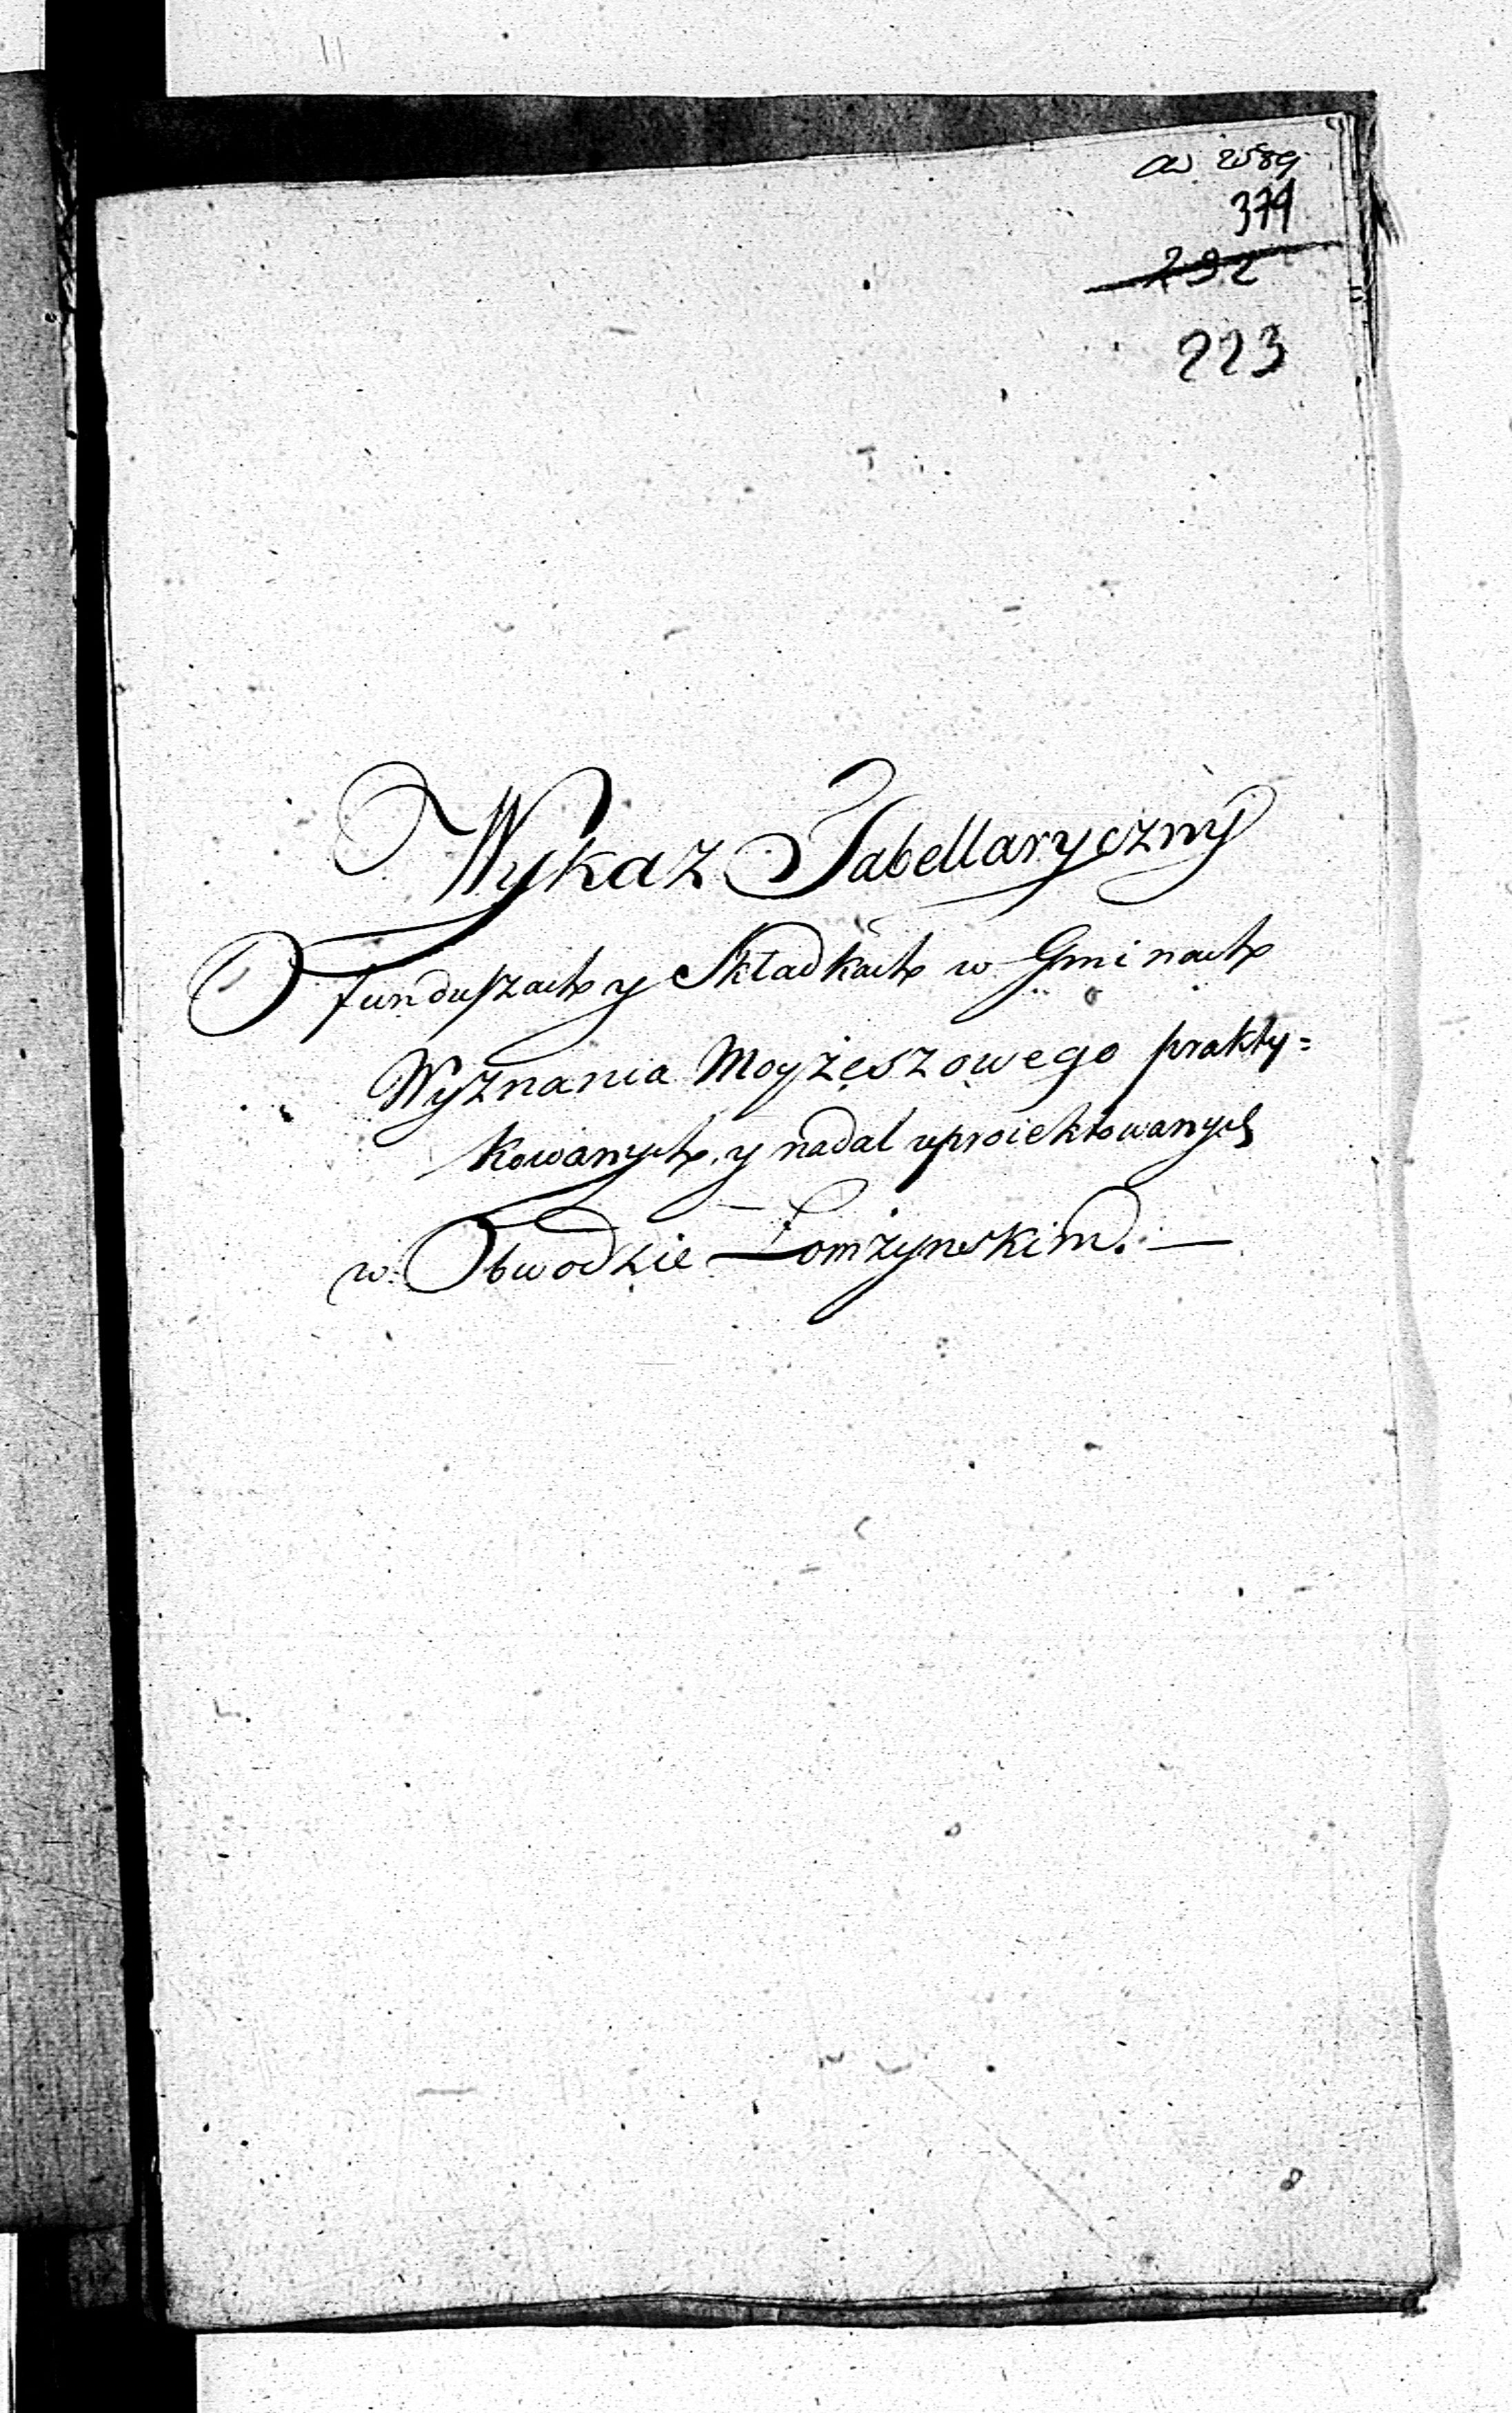 374
292
223
Wykaz Tabellaryczny
O funduszach y Składkach w Gminach
Wyznania Moyżeszowego prakty=
kowanych, y nadal uproiektowanych
w Obwodzie Łomżynskim. —